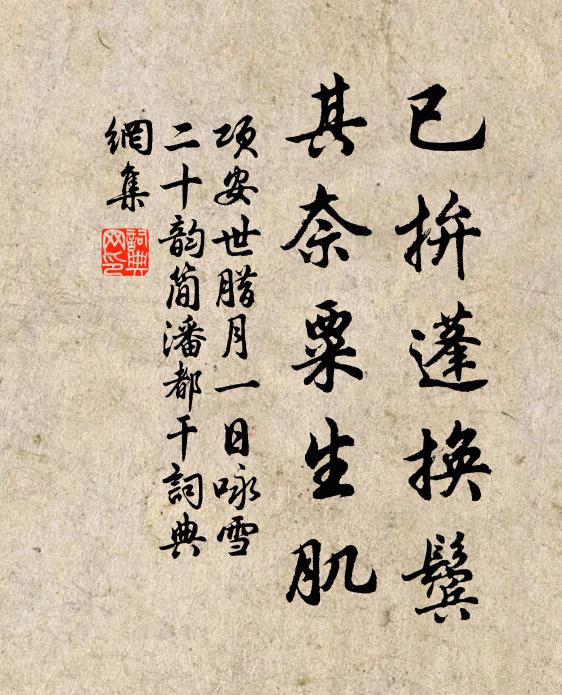 已拚蓬換鬓
其奈粟生肌
项安世腊月一日咏雪
二十韵简潘都干詞典
網集
詞典網印